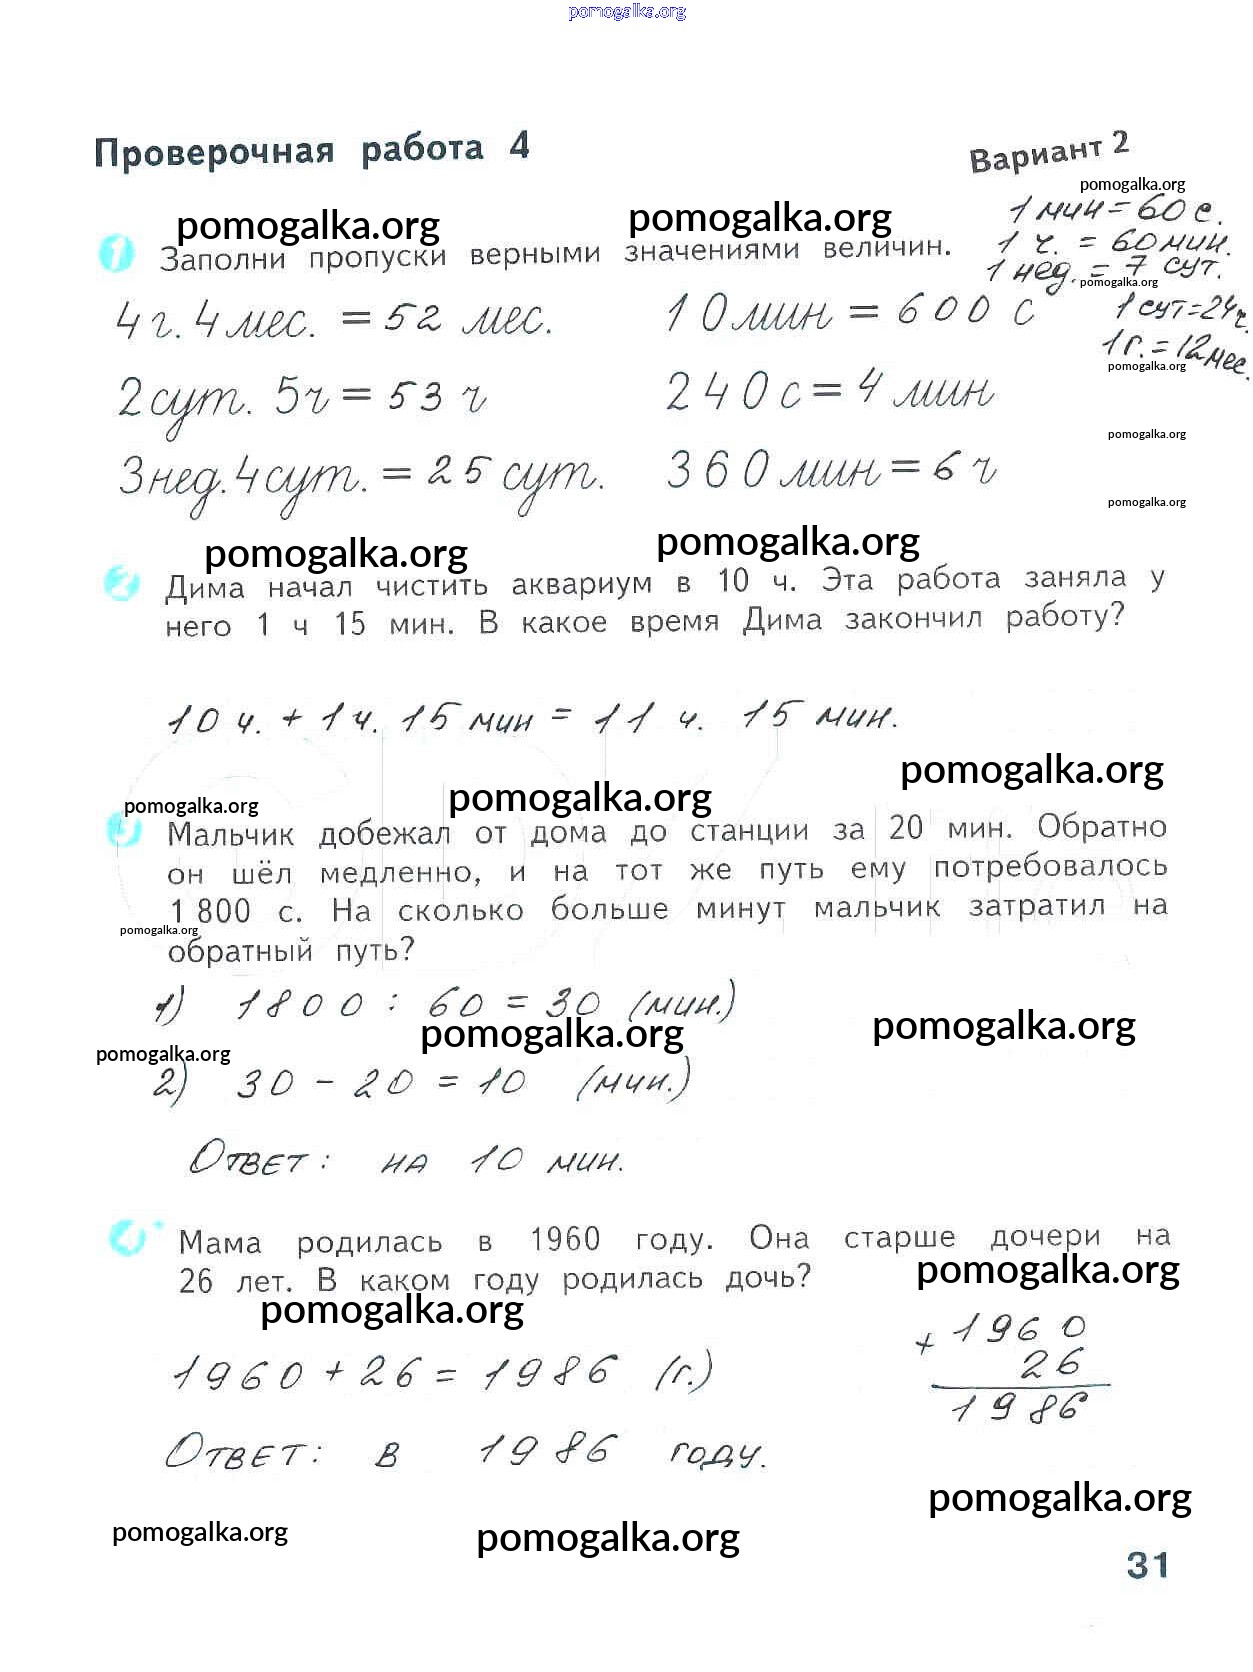 pomogalka.org
Проверочная работа 4
Вариант 2
pomogalka.org
pomogalka.org
pomogalka.org
1 мин = 60 с.
1 ч. = 60 мин.
1 Заполни пропуски верными значениями величин.
1 нед. = 7 сут.
pomogalka.org
1 сут = 24 ч.
1 г. = 12 мес.
pomogalka.org
4 г. 4 мес. = 52 мес. 10 мин = 600 с
2 сут. 5 ч = 53 ч 240 с = 4 мин
pomogalka.org
3 нед. 4 сут. = 25 сут. 360 мин = 6 ч
pomogalka.org
pomogalka.org
pomogalka.org
2 Дима начал чистить аквариум в 10 ч. Эта работа заняла у
него 1 ч 15 мин. В какое время Дима закончил работу?
10 ч. + 1 ч. 15 мин = 11 ч. 15 мин.
pomogalka.org
pomogalka.org
pomogalka.org
3 Мальчик добежал от дома до станции за 20 мин. Обратно
он шёл медленно, и на тот же путь ему потребовалось
1 800 с. На сколько больше минут мальчик затратил на
pomogalka.org
обратный путь?
1) 1800 : 60 = 30 (мин.)
pomogalka.org
pomogalka.org
pomogalka.org
2) 30 - 20 = 10 (мин.)
Ответ: на 10 мин.
4* Мама родилась в 1960 году. Она старше дочери на
26 лет. В каком году родилась дочь?
pomogalka.org
pomogalka.org
+ 1960
26
1986
1960 + 26 = 1986 (г.)
Ответ: в 1986 году.
pomogalka.org
pomogalka.org
pomogalka.org
31